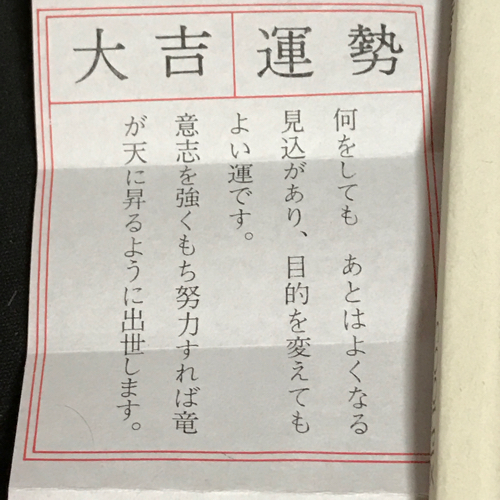 運勢
大吉
何をしても　あとはよくなる
見込があり、目的を変えても
よい運です。
意志を強くもち努力すれば竜
が天に昇るように出世します。